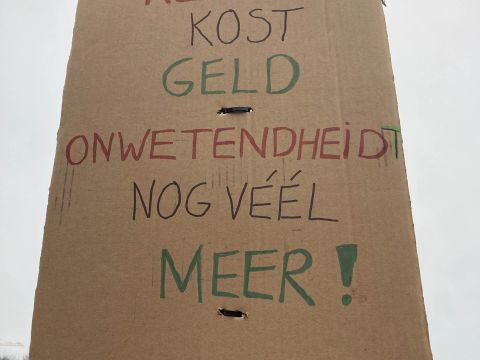 KOST
GELD
ONWETENDHEIDT
NOG VÉÉL
MEER!